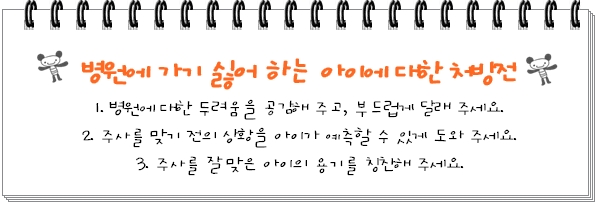 병원에 가기 싫어 하는 아이에 대한 처방전
1. 병원에 대한 두려움을 공감해 주고, 부드럽게 달래 주세요.
2. 주사를 맞기 전의 상황을 아이가 예측할 수 있게 도와 주세요.
3. 주사를 잘 맞은 아이의 용기를 칭찬해 주세요.